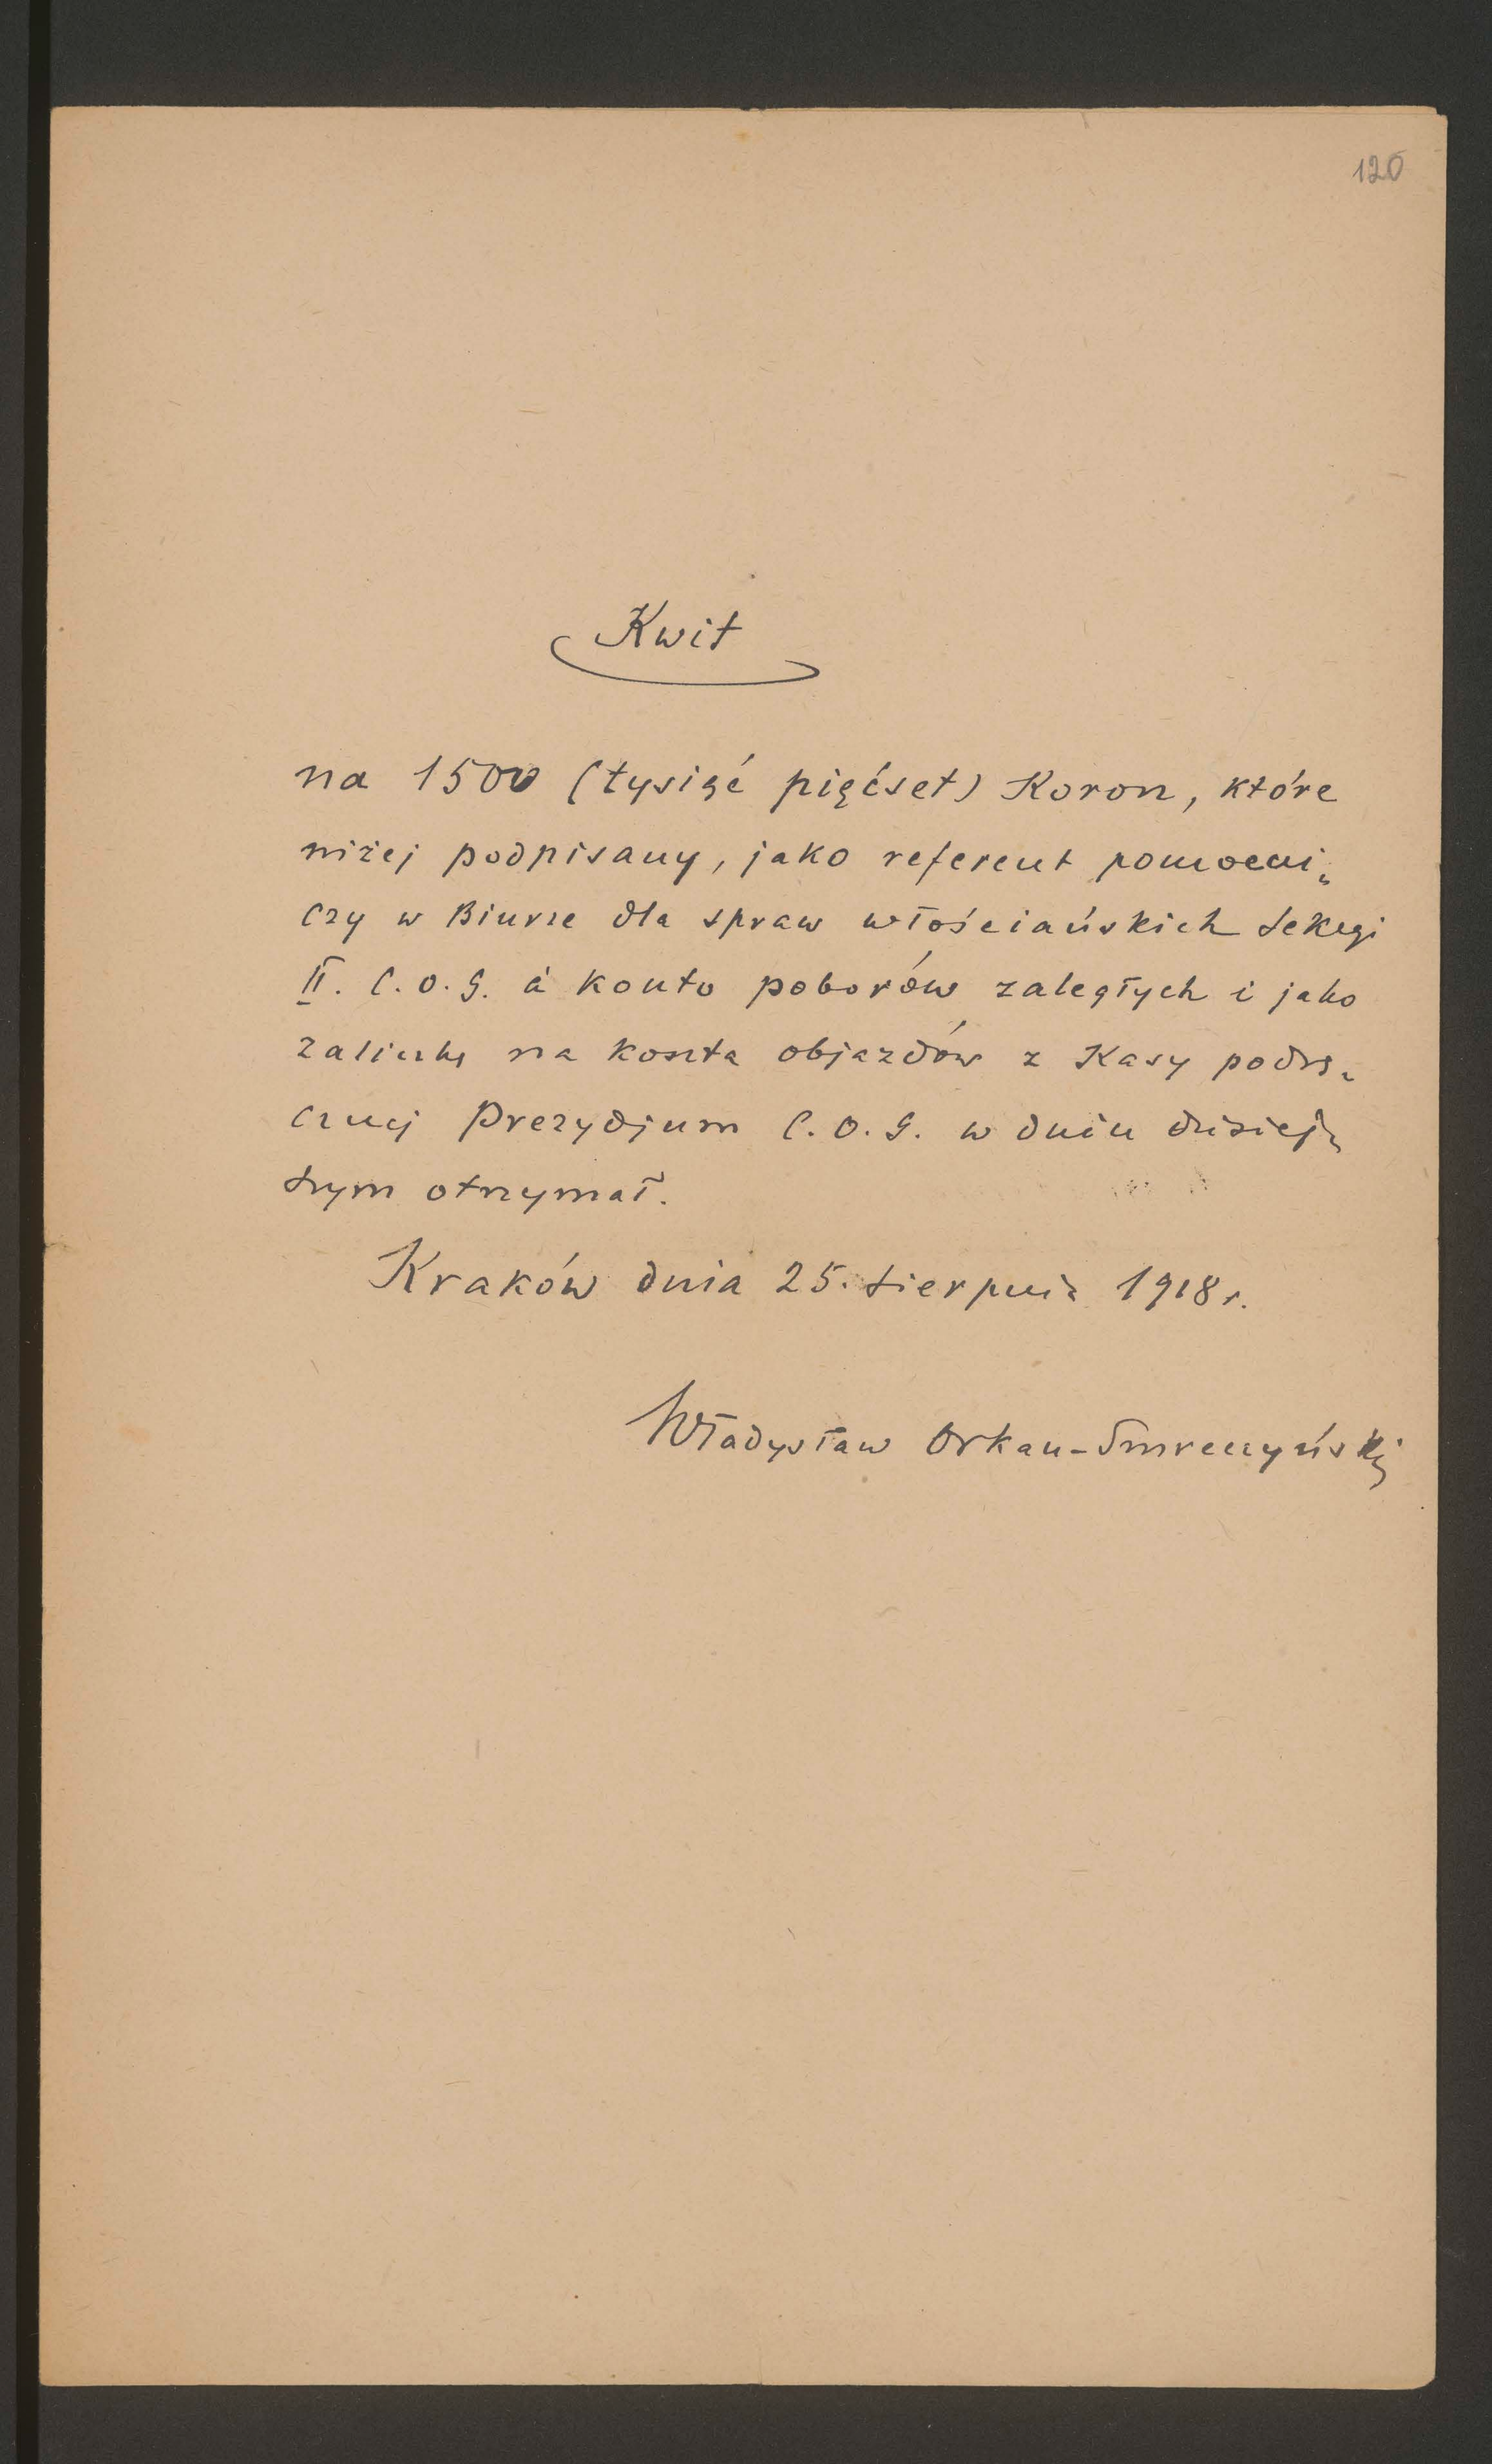 120
Kwit
na 1500 (tysiąć pięćset) Koron, które
niżej podpisany, jako referent pomocni-
czy w Biurze dla spraw włościańskich Sekcyi
II. C.O.G. à konto poborów zaległych i jako
zaliczkę na koszta objazdów z Kasy podrę-
cznej Prezydjum C.O.G. w dniu dzisiej-
szym otrzymał.
Kraków dnia 25. sierpnia 1918 r.
Władysław Orkan-Smreczyński